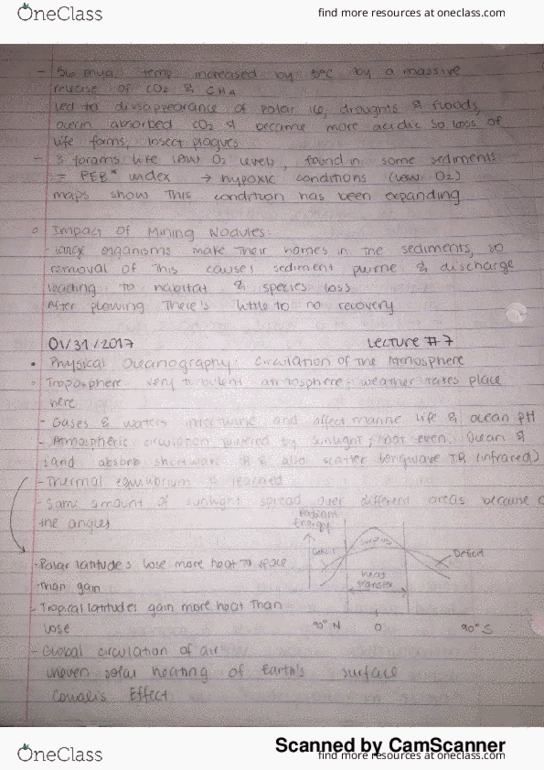 OneClass
find more resources at oneclass.com
- 56 mya, temp increased by 5°C by a massive
release of CO2 & CH4
led to dissappearance of polar ice, droughts & floods,
ocean absorbed CO2 & became more acidic so loss of
life forms, insect plagues
- 3 forams like low O2 levels, found in some sediments
= PEB* index → hypoxic conditions (low O2)
maps show this condition has been expanding
Impact of Mining Nodules:
- large organisms make their homes in the sediments, so
removal of this causes sediment plume & discharge
leading to habitat & species loss
After plowing there's little to no recovery
01/31/2017 Lecture #7
• Physical Oceanography: Circulation of the Atmosphere
Troposphere - very turbulent atmosphere - weather takes place
here
- Gases & waters intertwine and affect marine life & ocean pH
- Atmospheric circulation powered by sunlight, not even. Ocean &
land absorb shortwave & also scatter longwave IR (infrared)
- Thermal equilibrium is reached
- Same amount of sunlight spread over different areas because
the angles
Radiant
Energy
Surplus
Deficit
heat
transfer
90° N 0 90° S
- Polar latitudes lose more heat to space
than gain
- Tropical latitudes gain more heat than
lose
- Global circulation of air
uneven solar heating of earth's surface
Coriolis Effect
Scanned by CamScanner
OneClass
find more resources at oneclass.com